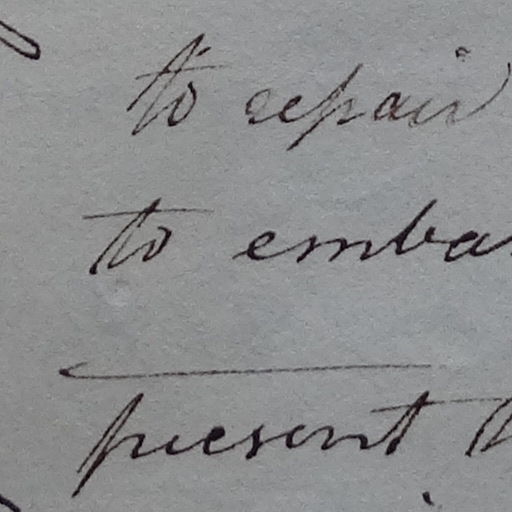 to repair
to emba
present